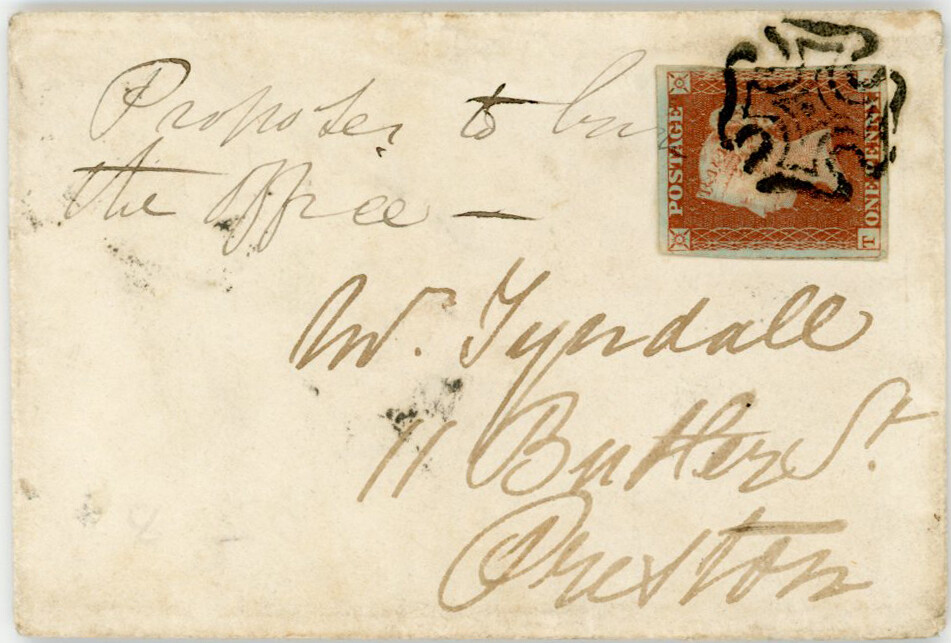 Proposes to buy
the Office —
POSTAGE
ONE PENNY
T
Mr. Tyndall
11 Butler St.
Preston